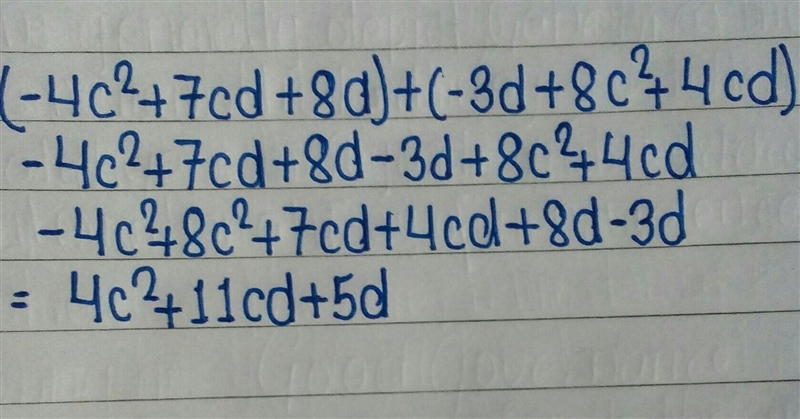 (-4c²+7cd+8d)+(-3d+8c²+4cd)
-4c²+7cd+8d-3d+8c²+4cd
-4c²+8c²+7cd+4cd+8d-3d
= 4c²+11cd+5d